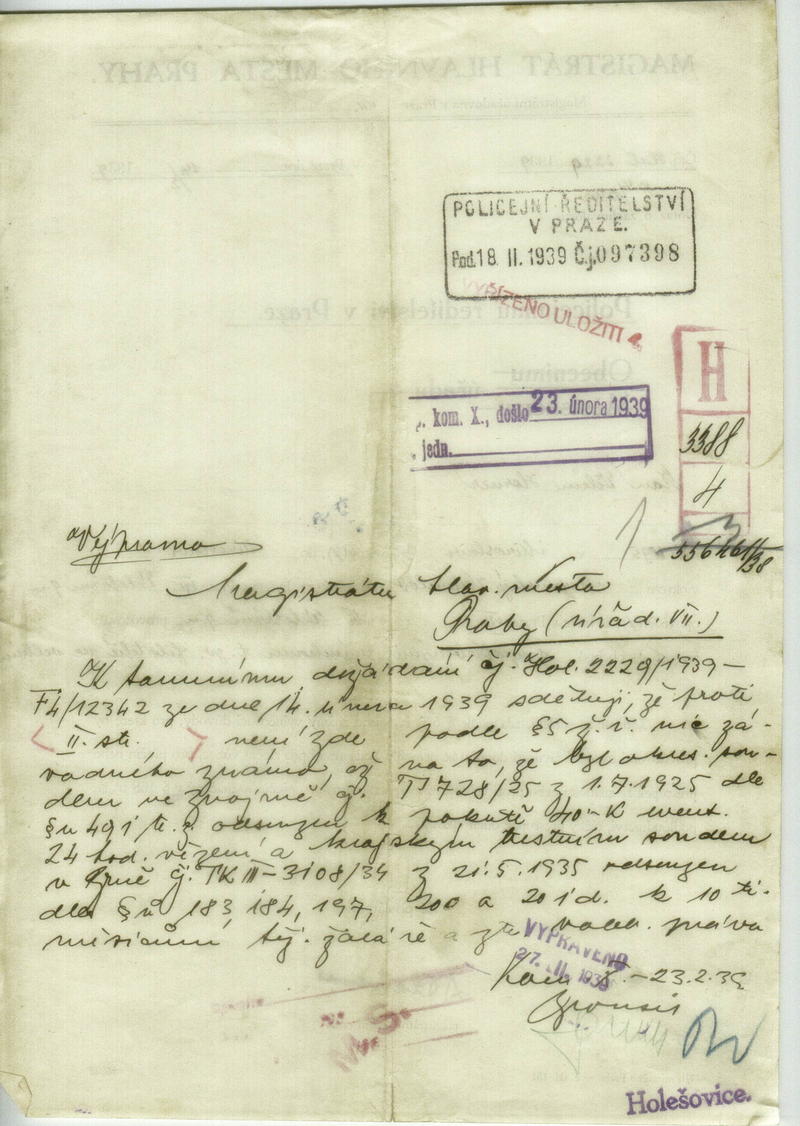 POLICEJNÍ ŘEDITELSTVÍ
V PRAZE.
Pod. 18. II. 1939 Č.j. 097398
VYŘÍZENO ULOŽITI
kom. X., došlo 23. února 1939
jedn.
H
3388
4
Výprava
Magistrátu hlav. města
Prahy (úřad. VII.)
K tamnímu dožádání čj. Hol. 2229/1939 –
F4/12342 ze dne 14. února 1939 sděluji, že proti
II. str. není zde podle §5 ž. ř. nic zá-
vadného známo, až na to, že byl okres. sou-
dem ve Znojmě čj. TI 728/25 z 1.7.1925 dle
§u 491 tr. z. odsouzen k pokutě 40.-K event.
24 hod. vězení a krajským trestním soudem
v Brně čj. TK III-3108/34 z 21.5.1935 odsouzen
dle §ů 183, 184, 197, 200 a 201 d. k 10 ti-
měsícům těž. žaláře a ztr. voleb. práva
VYPRAVENO
27. II. 1939
Kom X. – 23.2.39
Holešovice.